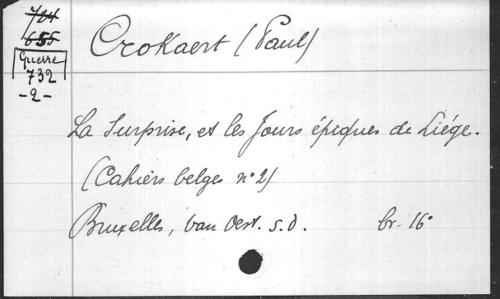 724
655
Guerre
732
-2-
Crokaert (Paul)
La Surprise, et les Jours épiques de Liége.
(Cahiers belges n° 2)
Bruxelles, van Oest. s.d. br. 16°